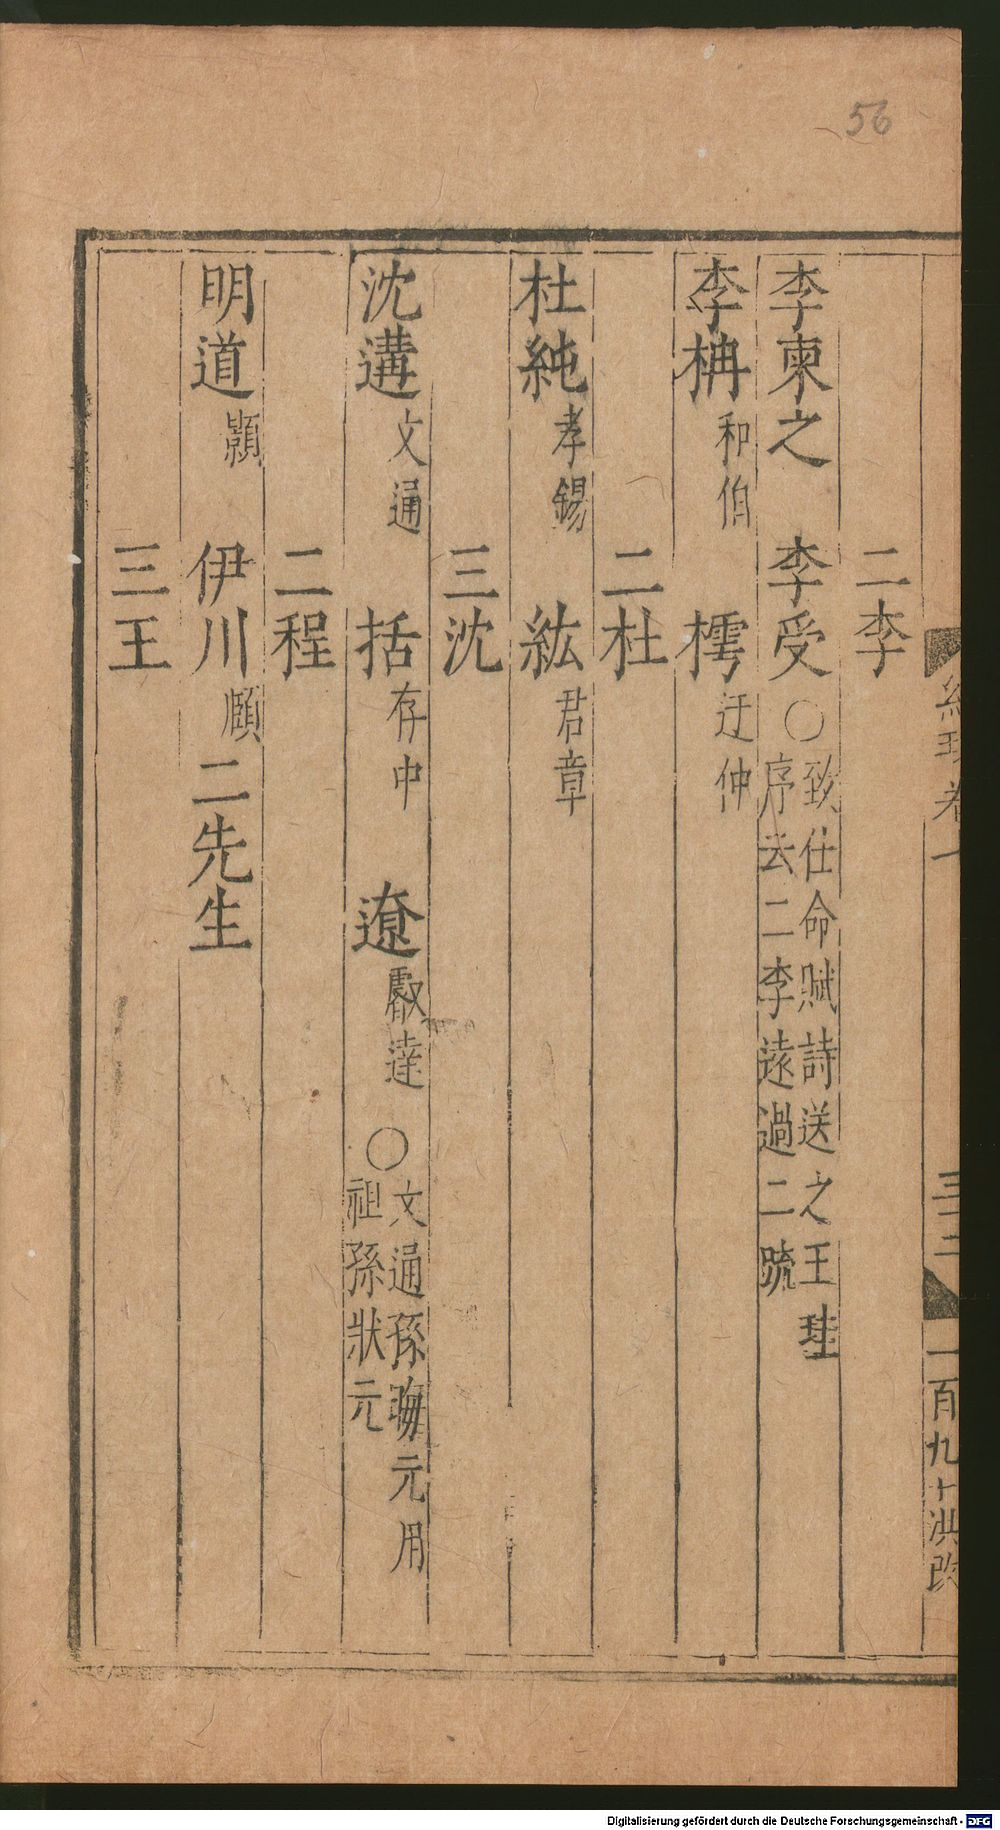 56
二李
李柬之 李受○致仕命賦詩送之王珪
序云二李遠過二疏
李柟和伯 樗迂仲
二杜
杜純孝錫 紘君章
三沈
沈遘文通 括存中 遼叡達 ○文通孫晦元用
祖孫狀元
二程
明道顥 伊川頤 二先生
三王
卷一
三二
一百九十洪改
Digitalisierung gefördert durch die Deutsche Forschungsgemeinschaft - DFG